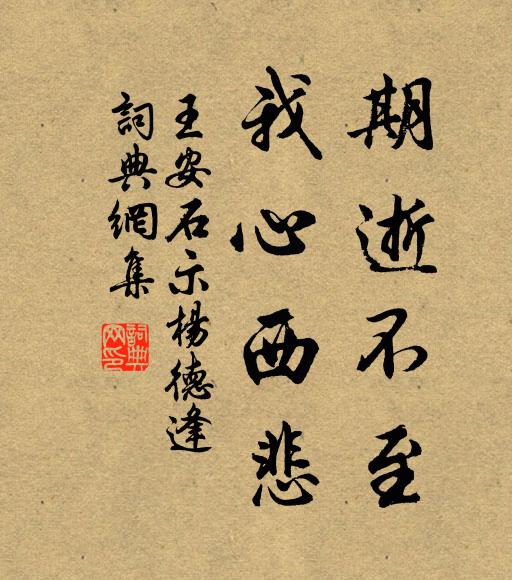 期逝不至
我心西悲
王安石示楊德逢
詞典網集
詞典网印